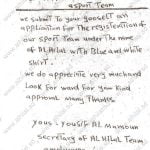 sport Team
we submit To your gooself an
application For The registention of
our sport Team under the name
of ALHilal with Blue and white
shirt.
we do apprecite very much and
Look For ward For you Kind
approval many Thanks.
yous
AL Mamoum
secretary of AL HilaL Team